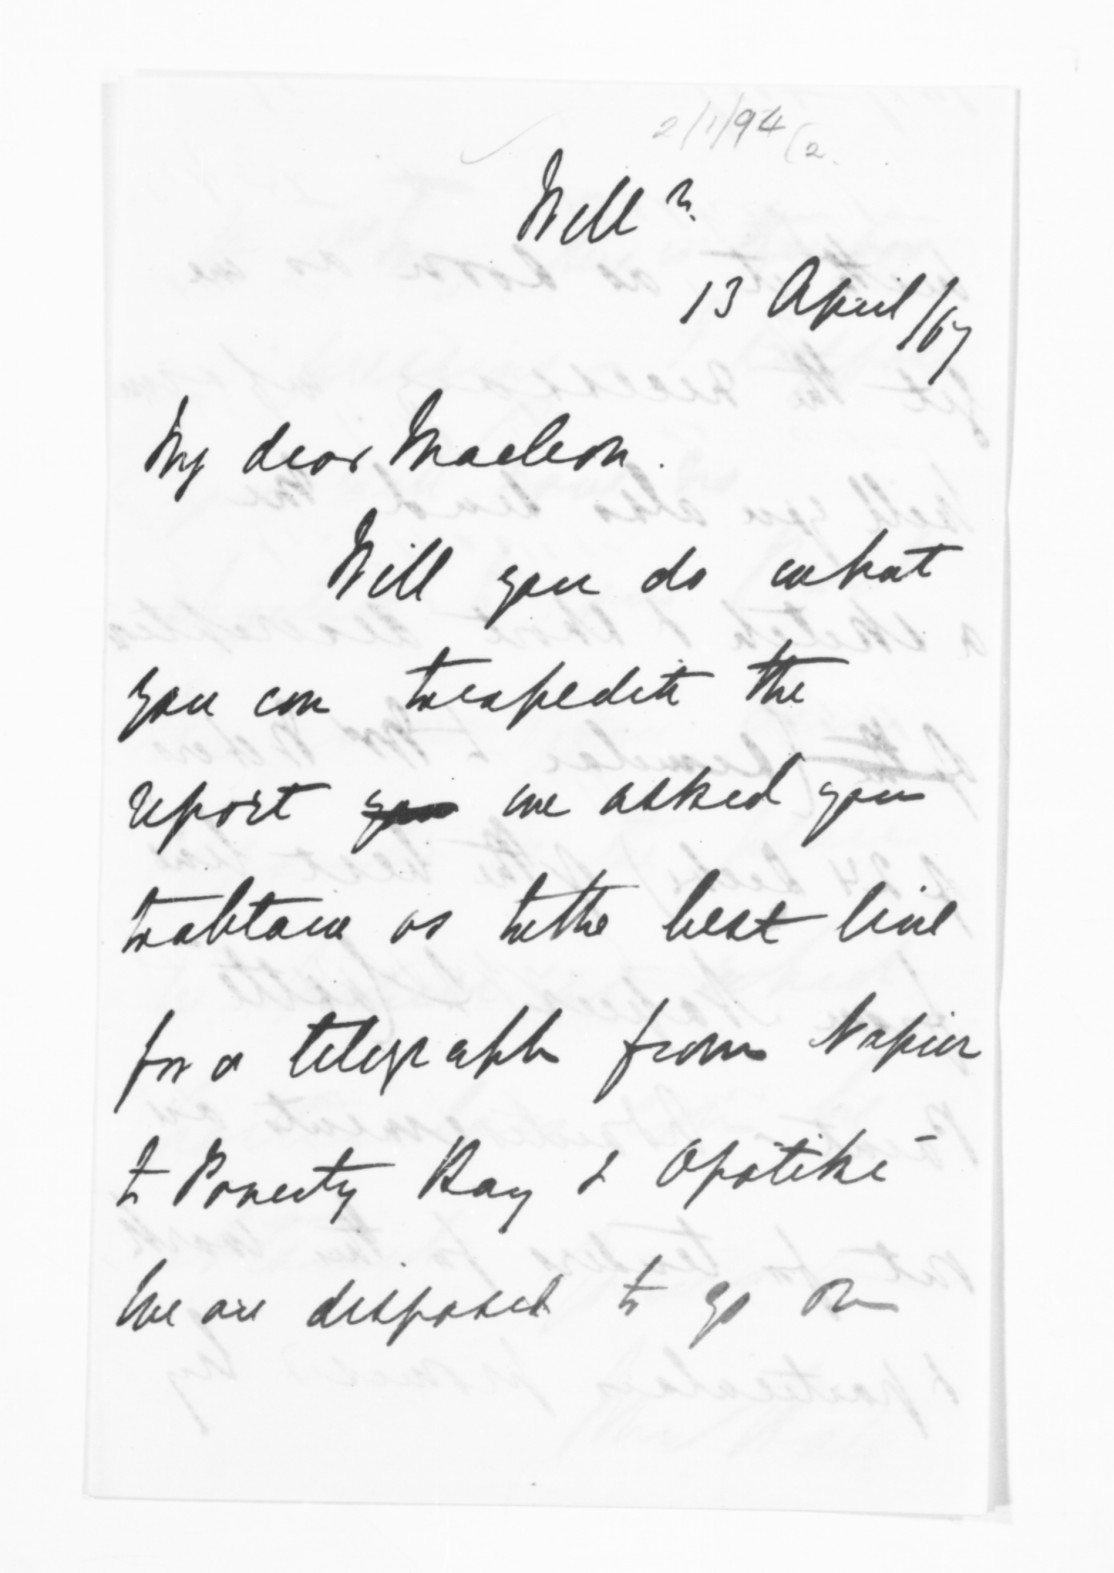 2/1/94 (2.
Well n.
13 April /67
My dear Maclean.
Will you do what
you can to expedite the
report you we asked you
to obtain as to the best line
for a telegraph from Napier
to Poverty Bay & Opotiki -
We are disposed to go on